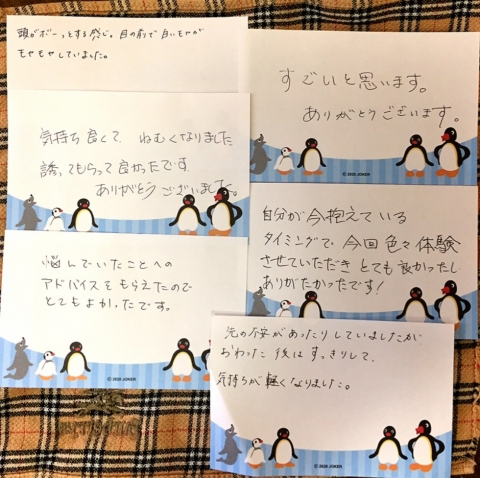 頭がボーっとする感じ。目の前で白いモヤが
モヤモヤしていました。
すごいと思います。
ありがとうございます。
© 2020 JOKER
気持ち良くて、ねむくなりました
誘ってもらって良かったです。
ありがとうございました。
自分が今抱えている
タイミングで、今回色々体験
させていただき とても良かったし
ありがたかったです！
悩んでいたことへの
アドバイスをもらえたので
とてもよかったです。
© 2020 JOKER
先の不安があったりしていましたが
おわった後はすっきりして、
気持ちが軽くなりました。
© 2020 JOKER